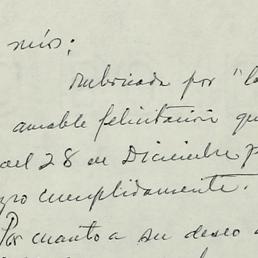 mios:
rubricada por "la
amable felicitación qu
del 28 de Diciembre p
cumplidamente.
Por cuanto a su deseo